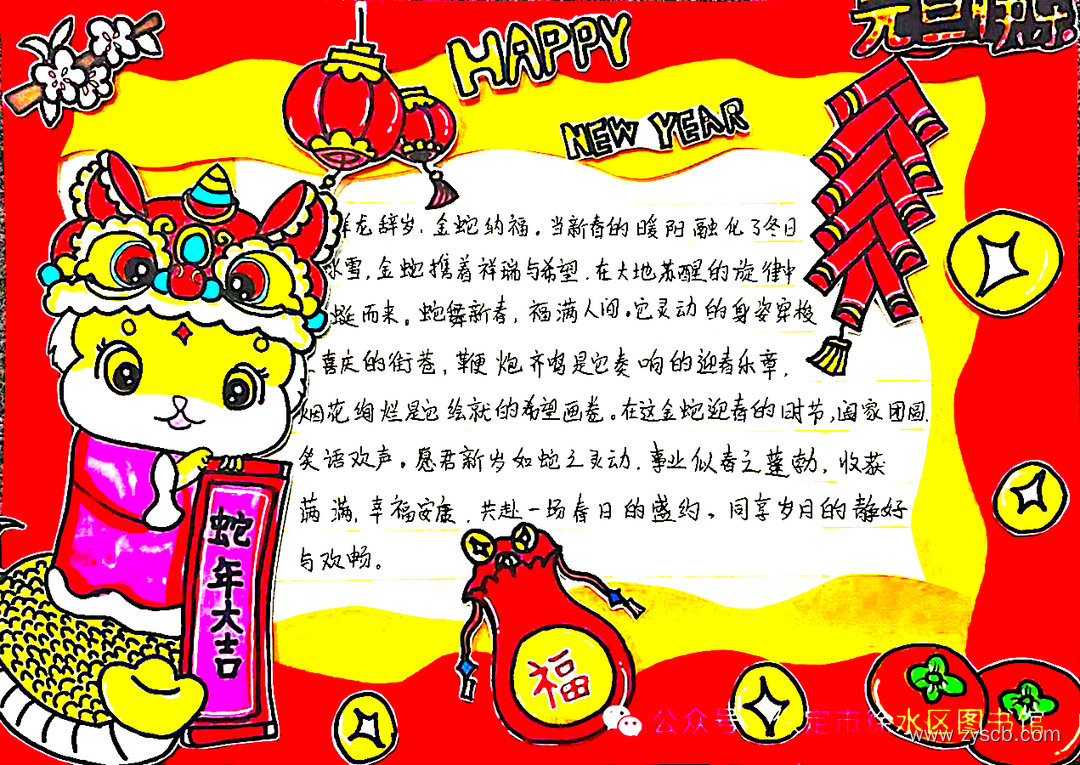 元旦快乐
HAPPY
NEW YEAR
龙辞岁,金蛇纳福。当新春的暖阳融化了冬日
冰雪,金蛇携着祥瑞与希望,在大地苏醒的旋律中
蜓而来。蛇舞新春,福满人间。它灵动的身姿穿梭
喜庆的街巷,鞭炮齐鸣是它奏响的迎春乐章,
烟花绚烂是它绘就的希望画卷。在这金蛇迎春的时节,阖家团圆
笑语欢声。愿君新岁如蛇之灵动,事业似春之蓬勃,收获
满满,幸福安康,共赴一场春日的盛约,同享岁月的静好
与欢畅。
蛇年大吉
福
公众号 定市徐水区图书馆
www.zyscb.com